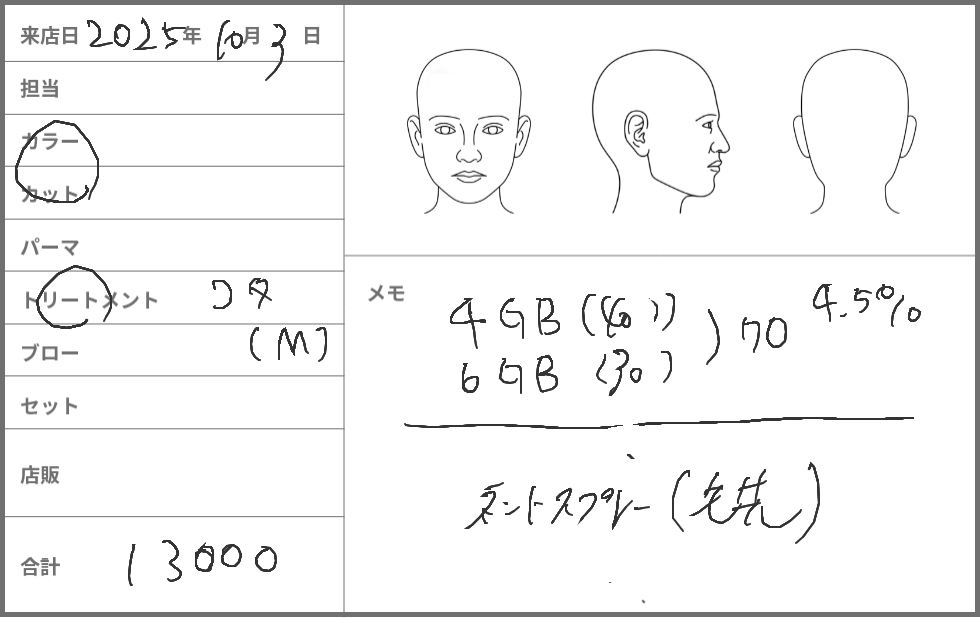 来店日 2025年 10月 3 日
担当
カラー
カット
パーマ
トリートメント コタ
(M)
ブロー
セット
店販
合計 13000
メモ
4GB (40)
6GB (30)
) 70 4.5%
スプレー (毛先)